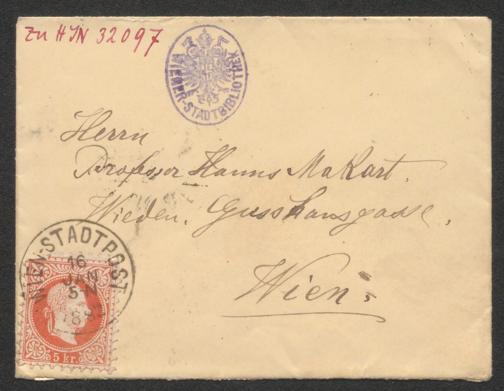 Zu HIN 32097
WIENER-STADTBIBLIOTHEK
Herrn
Professor Hanns Makart.
Wieden, Gusshausgasse.
Wien.
WIEN-STADTPOST
16
JAN
5 N
5 kr.